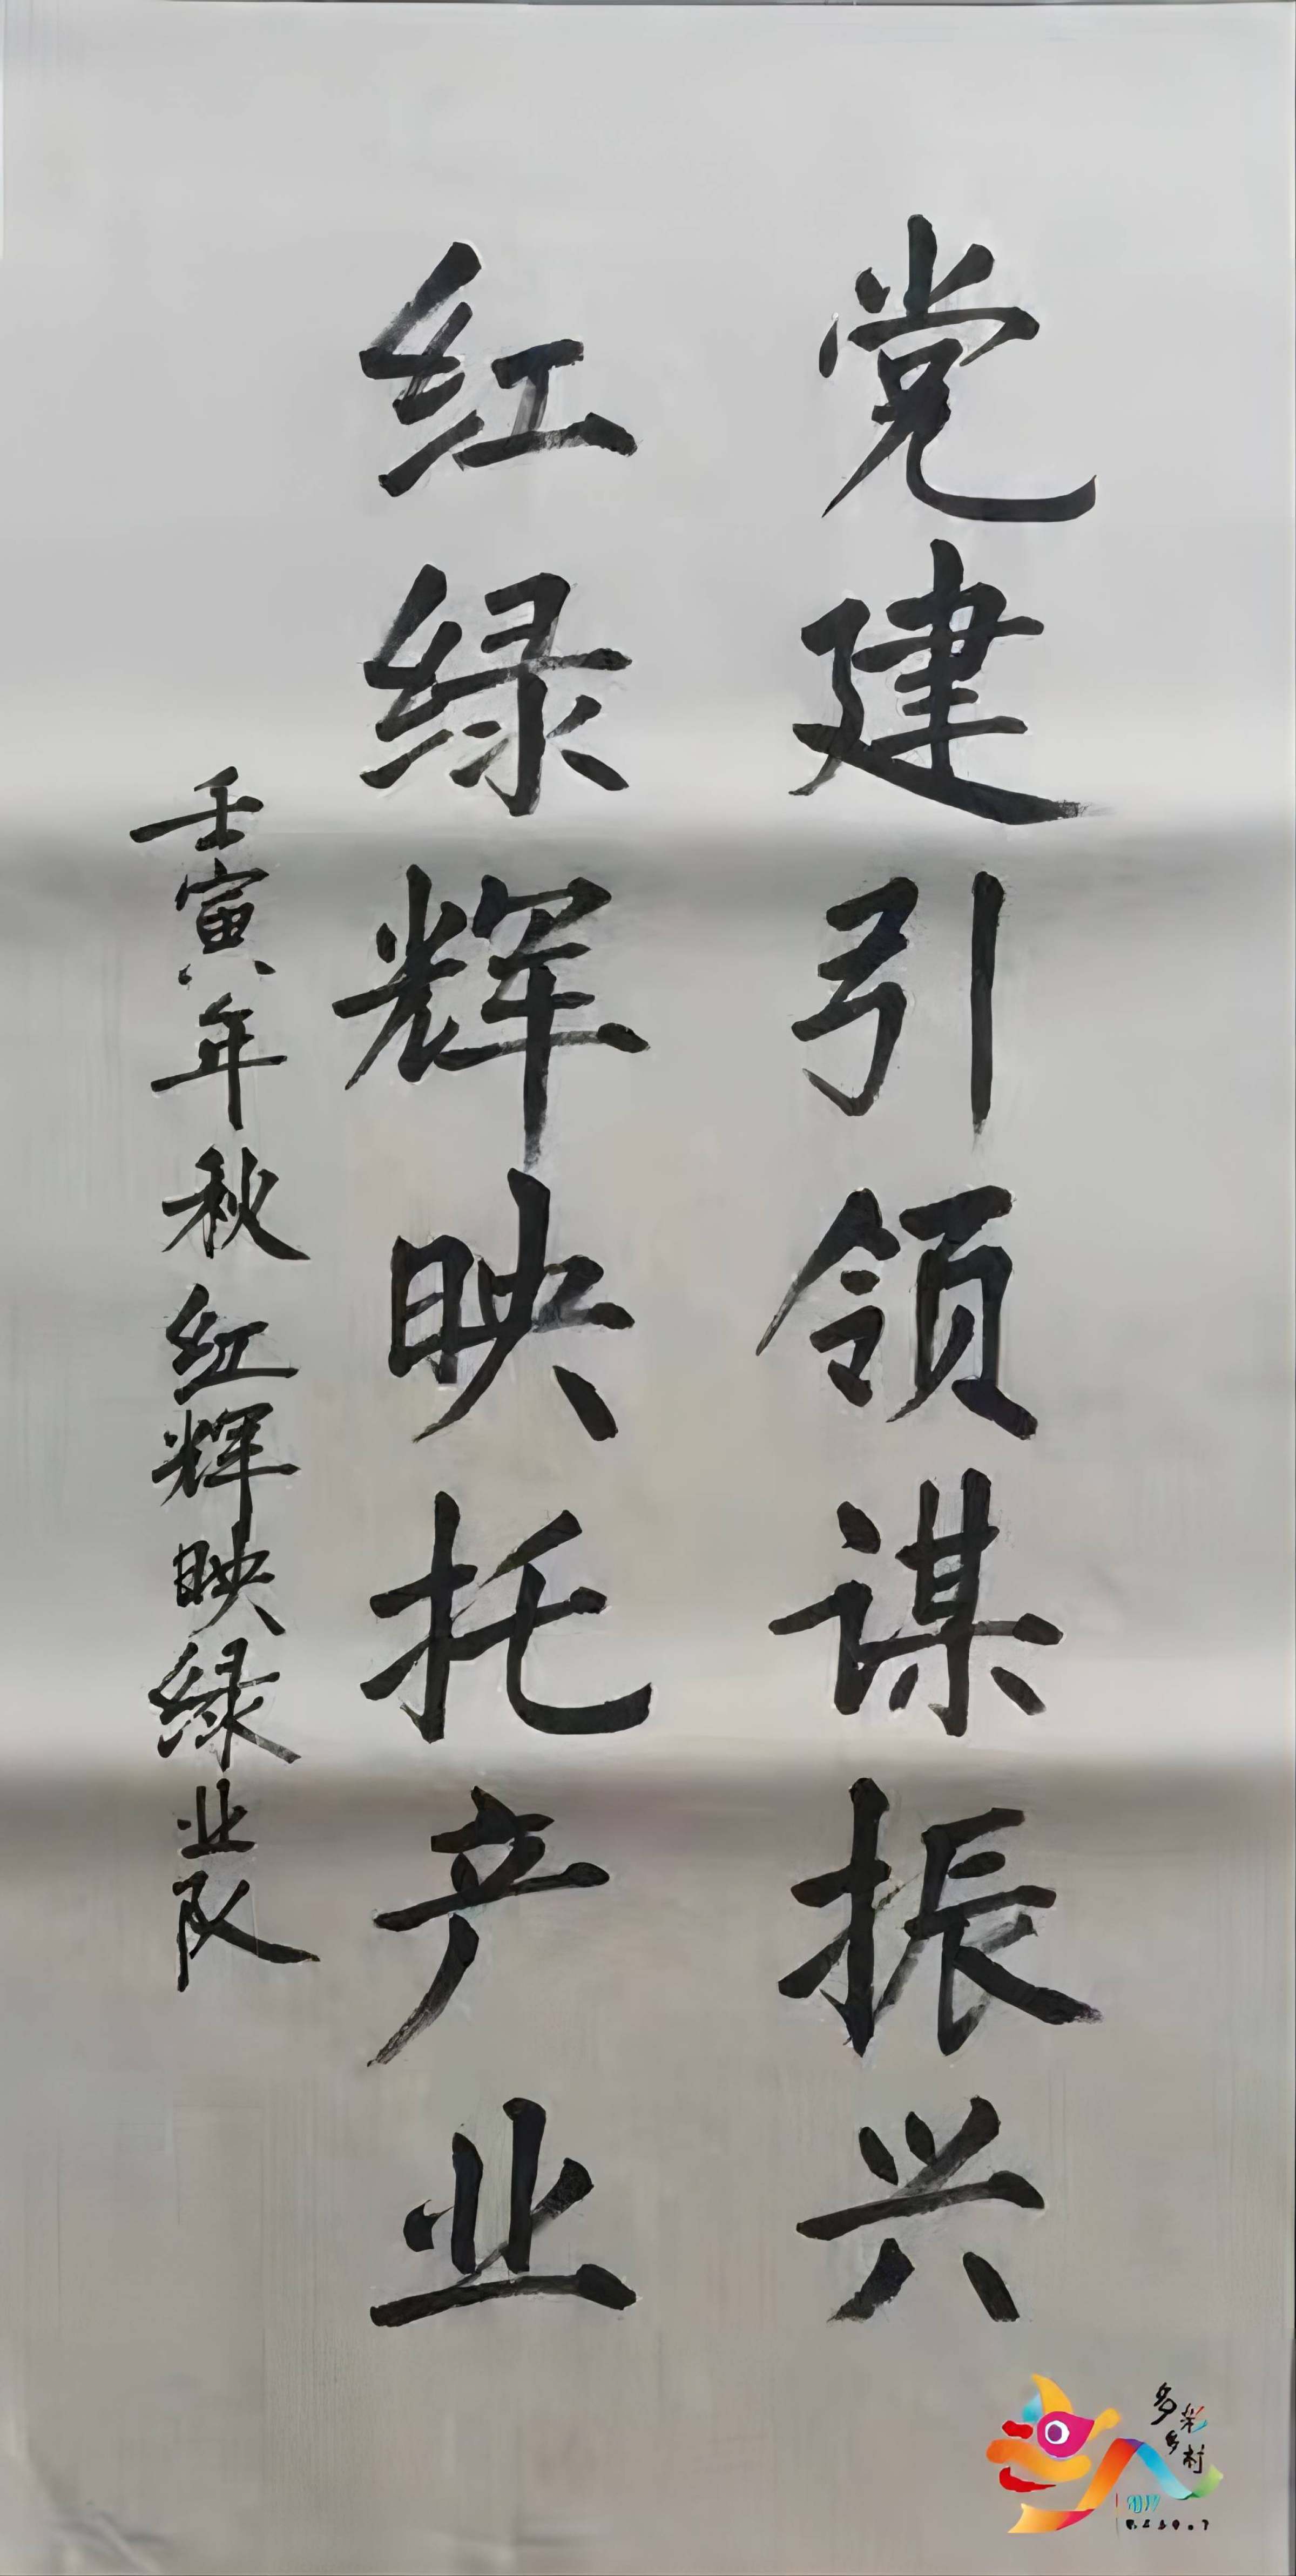 党建引领谋振兴
红绿辉映托产业
壬寅年秋红辉映绿业队
多彩
乡村